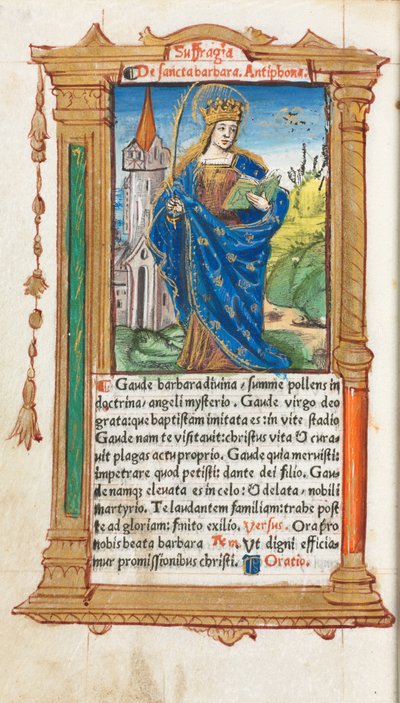 Suffragia
De sancta barbara. Antiphona.
Gaude barbara diuina, summe pollens in
doctrina, angeli mysterio. Gaude virgo deo
grata: que baptistam imitata es: in vite stadio
Gaude nam te visitauit: christus vita & cura-
uit plagas actu proprio. Gaude quia meruisti:
impetrare quod petisti: dante dei filio. Gau-
de namqȝ eleuata es in celo: & delata, nobili
martyrio. Te laudantem familiam: trahe post
te ad gloriam: finito exilio. Versus. Ora pro
nobis beata barbara Rem. Vt digni efficia-
mur promissionibus christi. Oratio.